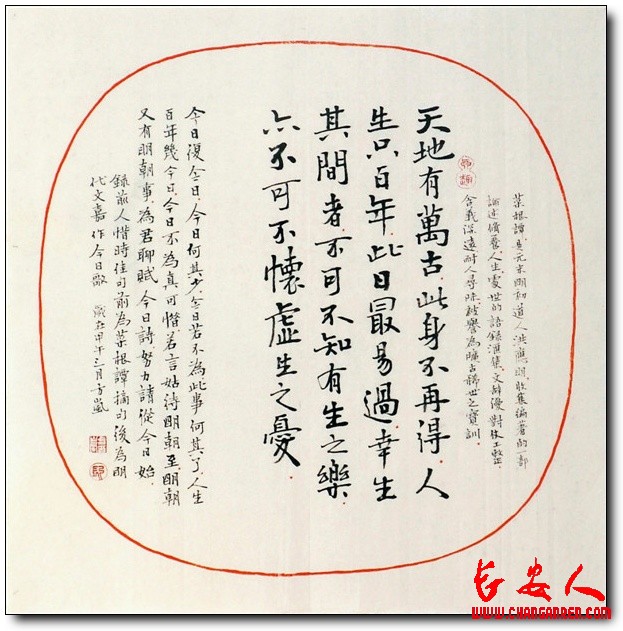 菜根譚是元末明初道人洪應明收集編著的一部
論述修養人生處世的語錄滙集文辭優對仗工整
含義深遠耐人尋味被譽為曠古稀世之寶訓
天地有萬古此身不再得人
生只百年此日最易過幸生
其間者不可不知有生之樂
亦不可不懷虛生之憂
今日復今日今日何其少今日若不為此事何其了人生
百年幾今日今日不為真可惜若言姑待明朝至明朝
又有明朝事為君聊賦今日詩努力請從今日始
錄前人惜時佳句前為菜根譚摘句後為明
代文嘉作今日歌 歲在甲午三月方嵐
长安人
WWW.CHANGANREN.COM